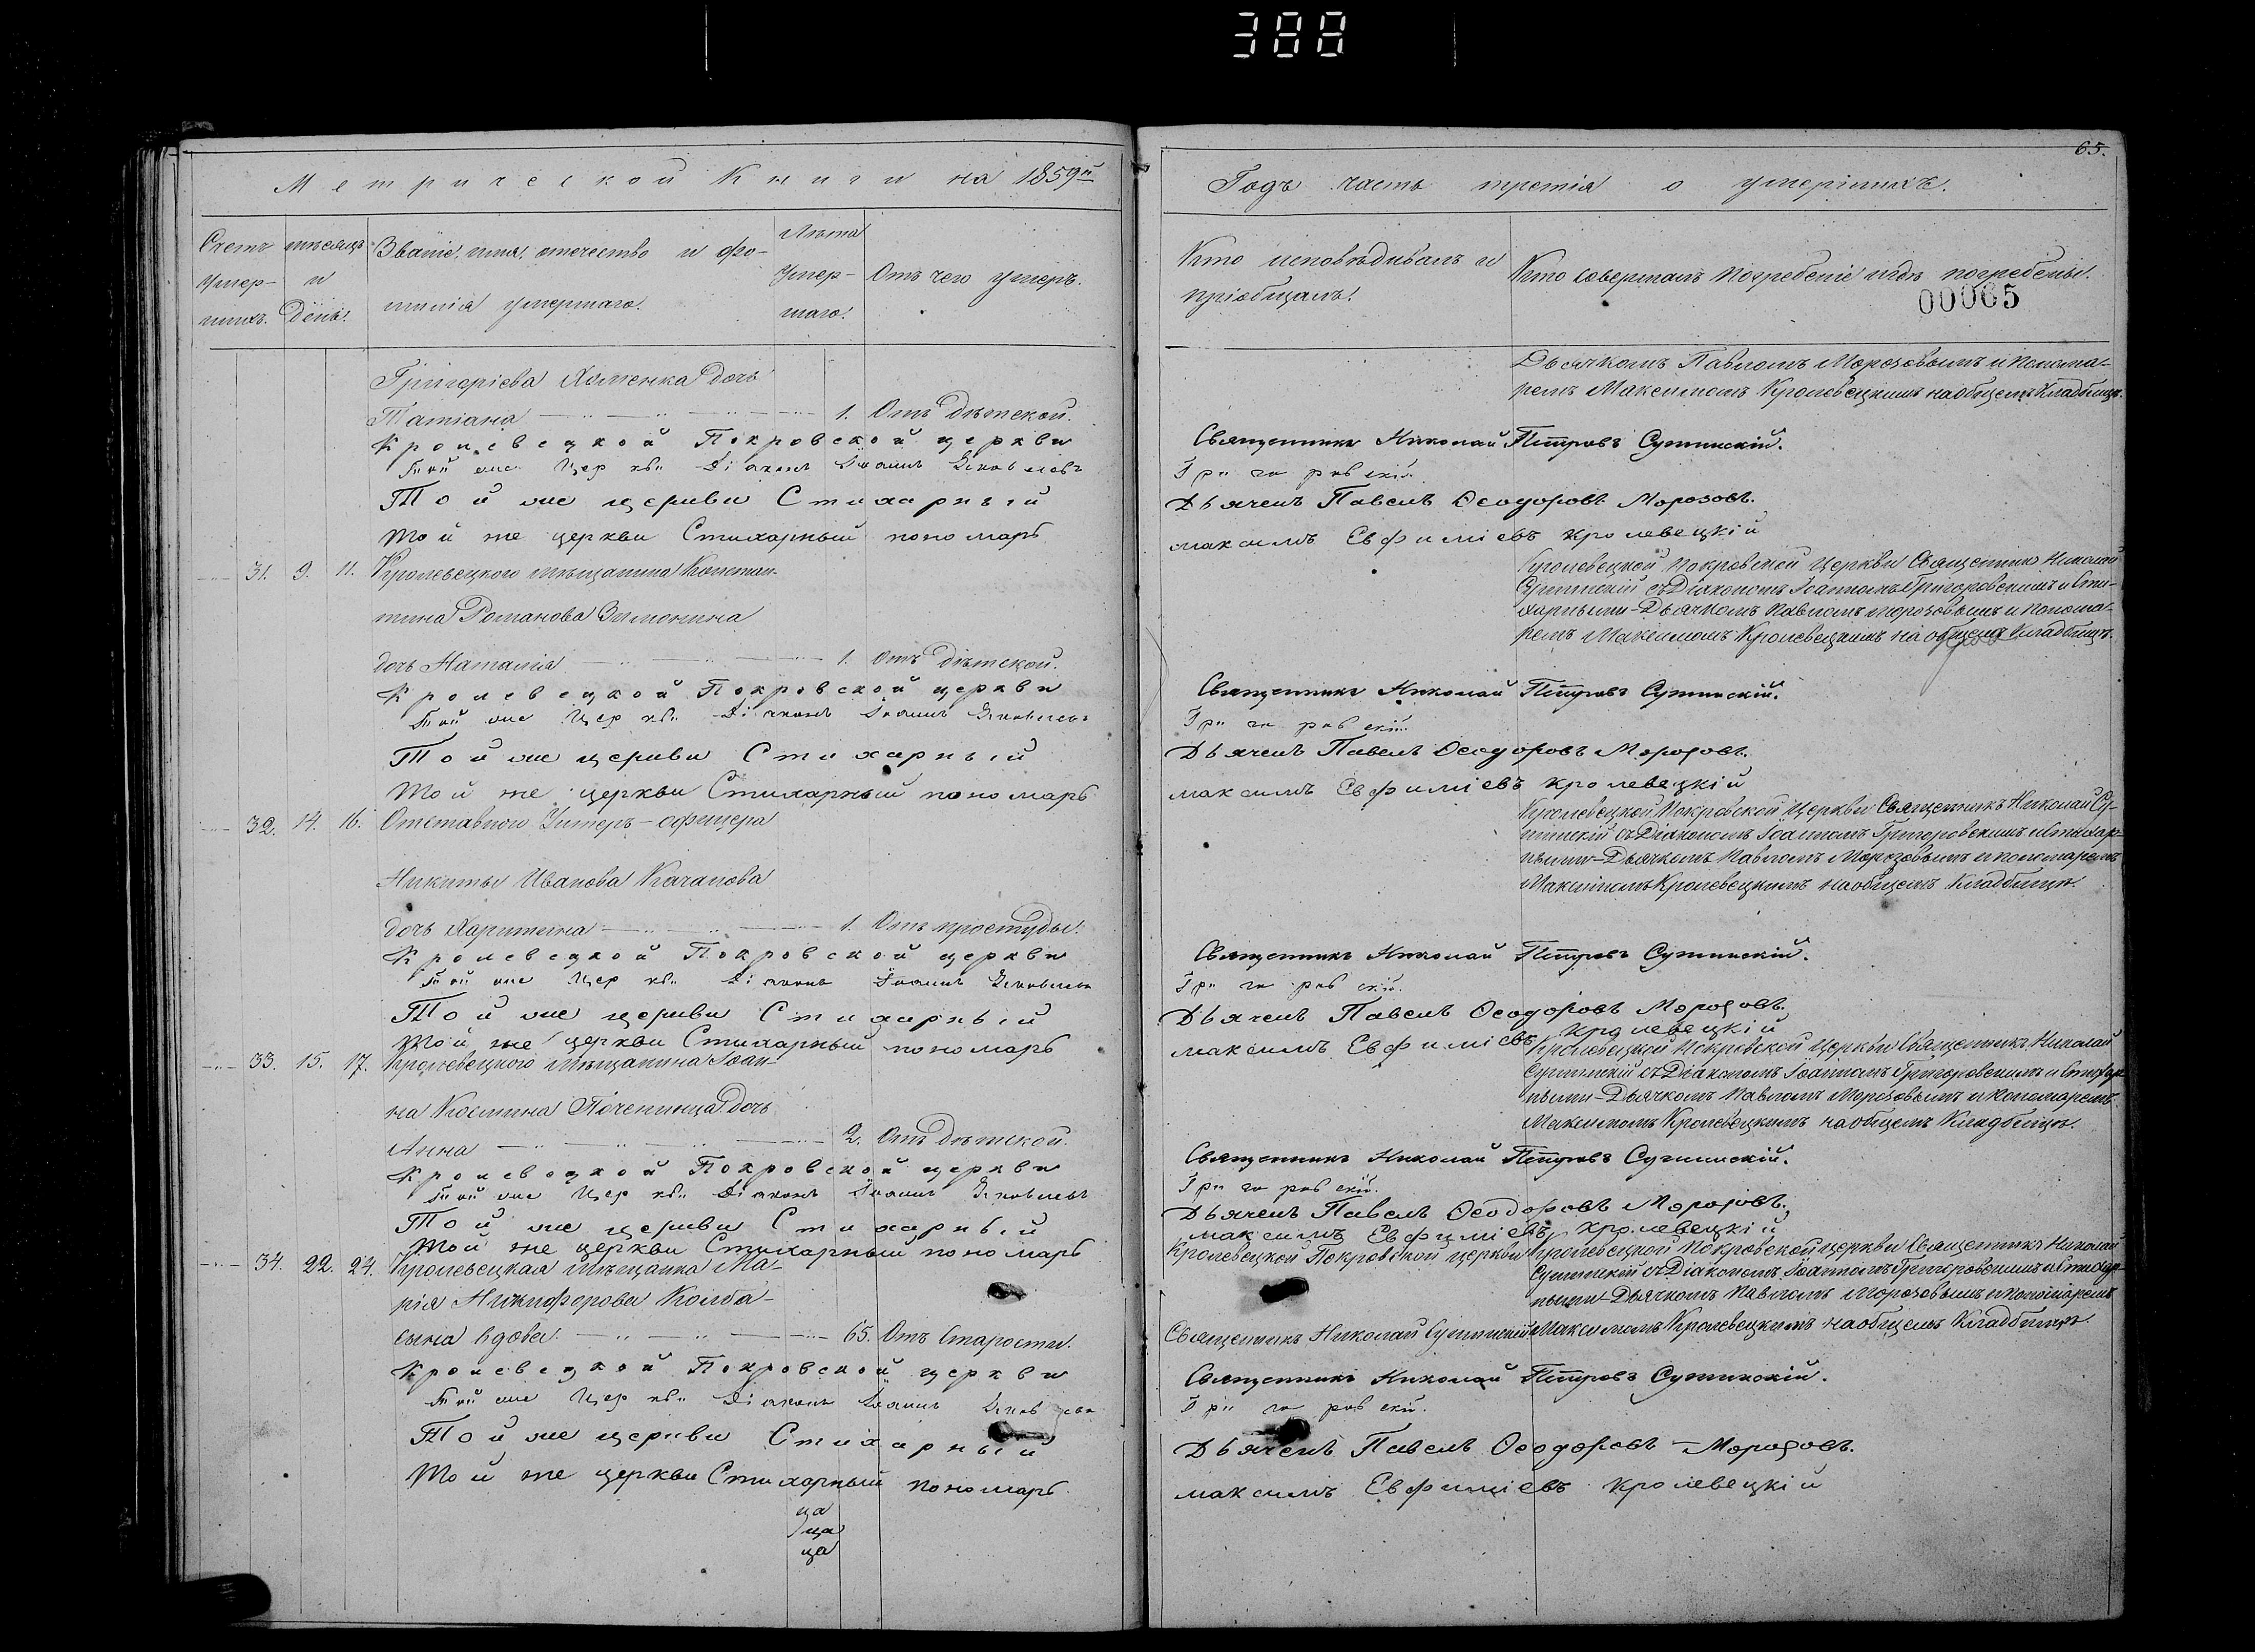 388
65.
Метрической Книги на 1859й
Годъ часть третія о умершихъ.
Счетъ умер-шихъ.
мѣсяцъ и день.
Званіе, имя, отчество и фа-
милія умершаго.
Лѣта умер-шаго.
Отъ чего умеръ.
Кто исповѣдывалъ и
пріобщалъ.
Кто совершалъ погребеніе и гдѣ погребены.
00065
Григоріева Хоменка дочь
Татіана 1. Отъ дѣтской.
Дьячкомъ Павломъ Морозовымъ и Понома-
ремъ Максимомъ Кролевецкимъ на общемъ Кладбищѣ.
Кролевецкой Покровской церкви Священникъ Николай Петровъ
Той же Церкви Діаконъ Іоаннъ Яковлевъ Григоровскій.
Той же церкви Стихарный Дьячекъ Павелъ Ѳеодоровъ Морозовъ.
Той же церкви Стихарный пономарь Максимъ Евфиміевъ Кролевецкій
31. 9. 11. Кролевецкого мѣщанина Констан-
тина Романова
дочь Наталія 1. Отъ дѣтской.
Кролевецкой Покровской Церкви Священник Николай
съ Діакономъ Іоанномъ Григоровскимъ и Сти-
харными-Дьячкомъ Павломъ Морозовымъ и Понома-
ремъ Максимомъ Кролевецкимъ на общемъ Кладбищѣ.
Кролевецкой Покровской церкви Священникъ Николай Петровъ
Той же Церкви Діаконъ Іоаннъ Яковлевъ Григоровскій.
Той же церкви Стихарный Дьячекъ Павелъ Ѳеодоровъ Морозовъ.
Той же церкви Стихарный пономарь Максимъ Евфиміевъ Кролевецкій
32. 14. 16. Отставного Унтеръ-офицера
Никиты Иванова Качанова
дочь Харитина 1. Отъ простуды.
Кролевецкой Покровской Церкви Священникъ Николай
съ Діакономъ Іоанномъ Григоровскимъ и Стихар-
ными-Дьячкомъ Павломъ Морозовымъ и пономаремъ
Максимомъ Кролевецкимъ на общемъ Кладбищѣ.
Кролевецкой Покровской церкви Священникъ Николай Петровъ
Той же Церкви Діаконъ Іоаннъ Яковлевъ Григоровскій.
Той же церкви Стихарный Дьячекъ Павелъ Ѳеодоровъ Морозовъ.
Той же церкви Стихарный пономарь Максимъ Евфиміевъ Кролевецкій
33. 15. 17. Кролевецкого мѣщанина Іоан-
на Космина дочь
Анна 2. Отъ дѣтской.
Кролевецкой Покровской Церкви Священникъ Николай
съ Діакономъ Іоанномъ Григоровскимъ и Стихар-
ными-Дьячкомъ Павломъ Морозовымъ и Пономаремъ
Максимомъ Кролевецкимъ на общемъ Кладбищѣ.
Кролевецкой Покровской церкви Священникъ Николай Петровъ
Той же Церкви Діаконъ Іоаннъ Яковлевъ Григоровскій.
Той же церкви Стихарный Дьячекъ Павелъ Ѳеодоровъ Морозовъ.
Той же церкви Стихарный пономарь Максимъ Евфиміевъ Кролевецкій
34. 22. 24. Кролевецкая мѣщанка Ма-
рія Никифорова Колба-
сына вдова. 65. Отъ Старости.
Кролевецкой Покровской церкви
Священникъ Николай
Кролевецкой Покровской церкви Священникъ Николай
съ Діакономъ Іоанномъ Григоровскимъ и Стихар-
ными-Дьячкомъ Павломъ Морозовымъ и пономаремъ
Максимомъ Кролевецкимъ на общемъ Кладбищѣ.
Кролевецкой Покровской церкви Священникъ Николай Петровъ
Той же Церкви Діаконъ Іоаннъ Яковлевъ Григоровскій.
Той же церкви Стихарный Дьячекъ Павелъ Ѳеодоровъ Морозовъ.
Той же церкви Стихарный пономарь Максимъ Евфиміевъ Кролевецкій
ца
ца
ца